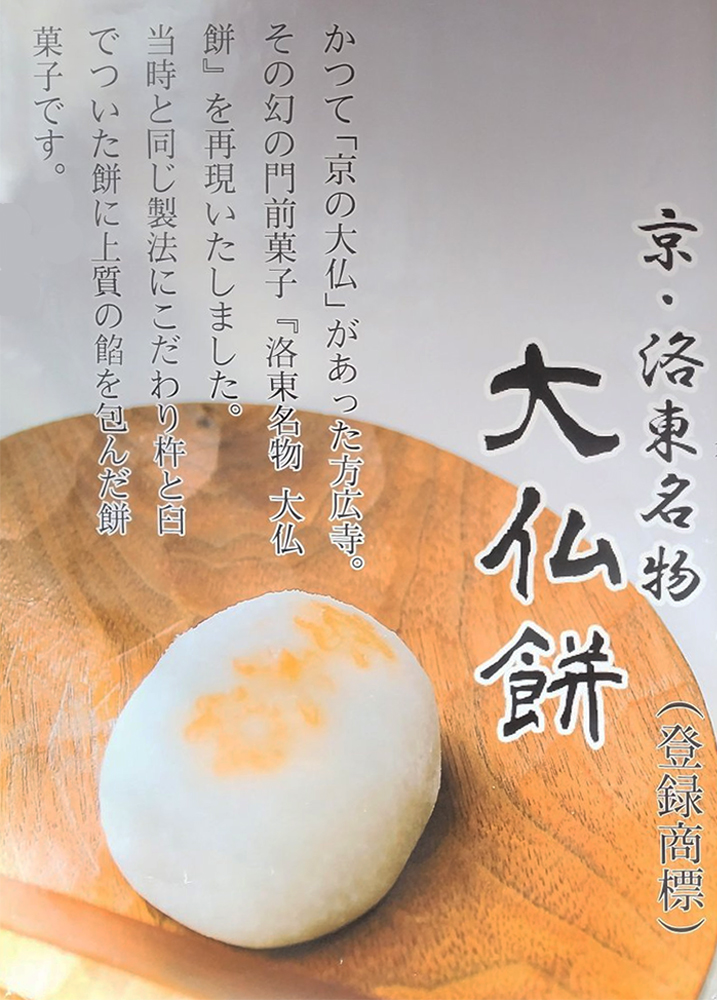 京・洛東名物
大仏餅
（登録商標）
かつて「京の大仏」があった方広寺。
その幻の門前菓子『洛東名物 大仏
餅』を再現いたしました。
当時と同じ製法にこだわり杵と臼
でついた餅に上質の餡を包んだ餅
菓子です。